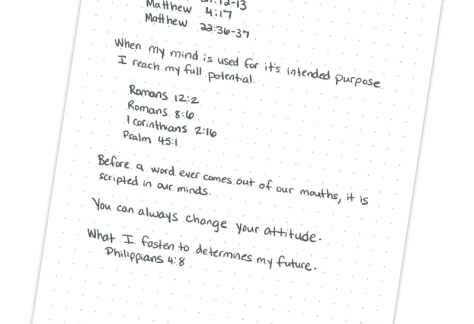 12-13
Matthew 4:17
Matthew 22:36-37
When my mind is used for it's intended purpose
I reach my full potential.
Romans 12:2
Romans 8:6
1 Corinthians 2:16
Psalm 45:1
Before a word ever comes out of our mouths, it is
scripted in our minds.
You can always change your attitude.
What I fasten to determines my future.
Philippians 4:8